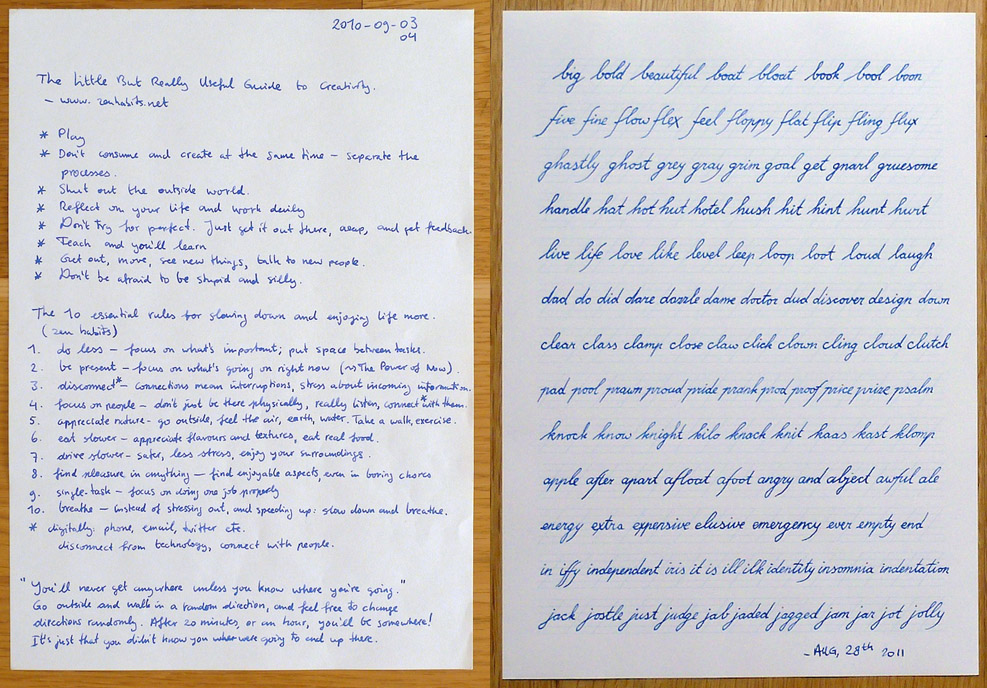 2010-09-03
04
The Little But Really Useful Guide to Creativity.
- www.zenhabits.net
* Play
* Don't consume and create at the same time - separate the
processes.
* Shut out the outside world.
* Reflect on your life and work daily
* Don't try for perfect. Just get it out there, asap, and get feedback.
* Teach and you'll learn
* Get out, move, see new things, talk to new people.
* Don't be afraid to be stupid and silly.
The 10 essential rules for slowing down and enjoying life more.
(zen habits)
1. do less - focus on what's important; put space between tasks.
2. be present - focus on what's going on right now (~> The Power of Now).
3. disconnect* - connections mean interruptions, stress about incoming information.
4. focus on people - don't just be there physically, really listen, connect* with them.
5. appreciate nature - go outside, feel the air, earth, water. Take a walk, exercise.
6. eat slower - appreciate flavours and textures, eat real food.
7. drive slower - safer, less stress, enjoy your surroundings.
8. find pleasure in anything - find enjoyable aspects, even in boring chores
9. single-task - focus on doing one job properly
10. breathe - instead of stressing out, and speeding up: slow down and breathe.
* digitally: phone, email, twitter etc.
disconnect from technology, connect with people.
"You'll never get anywhere unless you know where you're going."
Go outside and walk in a random direction, and feel free to change
directions randomly. After 20 minutes, or an hour, you'll be somewhere!
It's just that you didn't know you were going to end up there.
big bold beautiful boat bloat book bool boon
five fine flow flex feel floppy flat flip fling flux
ghastly ghost grey gray grim goal get gnarl gruesome
handle hat hot hut hotel hush hit hint hunt hurt
live life love like level leep loop loot loud laugh
dad do did dare dazzle dame doctor dud discover design down
clear class clamp close claw click clown cling cloud clutch
pad pool prawn proud pride prank prod proof price prize psalm
knock know knight kilo knack knit kaas kast klomp
apple after apart afloat afoot angry and abject awful ale
energy extra expensive elusive emergency ever empty end
in iffy independent iris it is ill ilk identity insomnia indentation
jack jostle just judge jab jaded jagged jam jar jot jolly
- AUG, 28th 2011